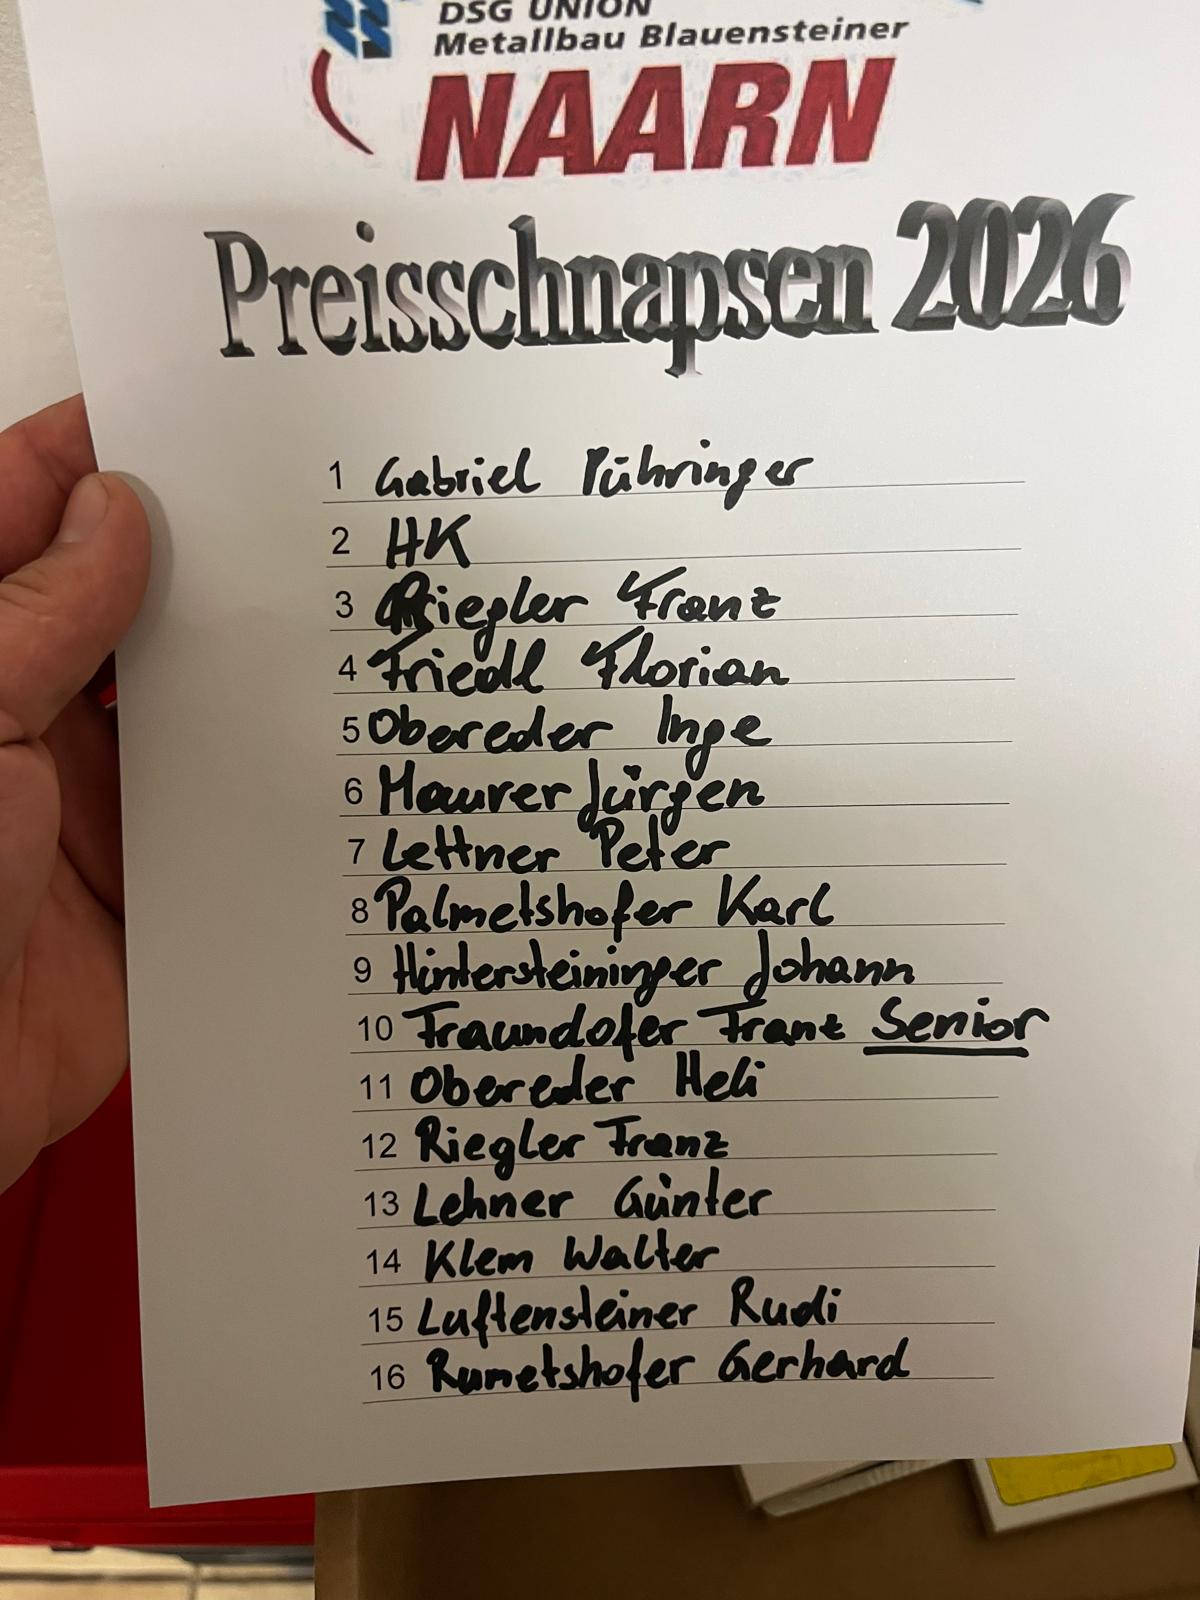 DSG UNION
Metallbau Blauensteiner
NAARN
Preisschnapsen 2026
1 Gabriel Pühringer
2 HK
3 Riegler Franz
4 Friedl Florian
5 Obereder Inge
6 Maurer Jürgen
7 Lettner Peter
8 Palmetshofer Karl
9 Hintersteininger Johann
10 Traundofer Franz Senior
11 Obereder Heli
12 Riegler Franz
13 Lehner Günter
14 Klem Walter
15 Luftensteiner Rudi
16 Rumetshofer Gerhard